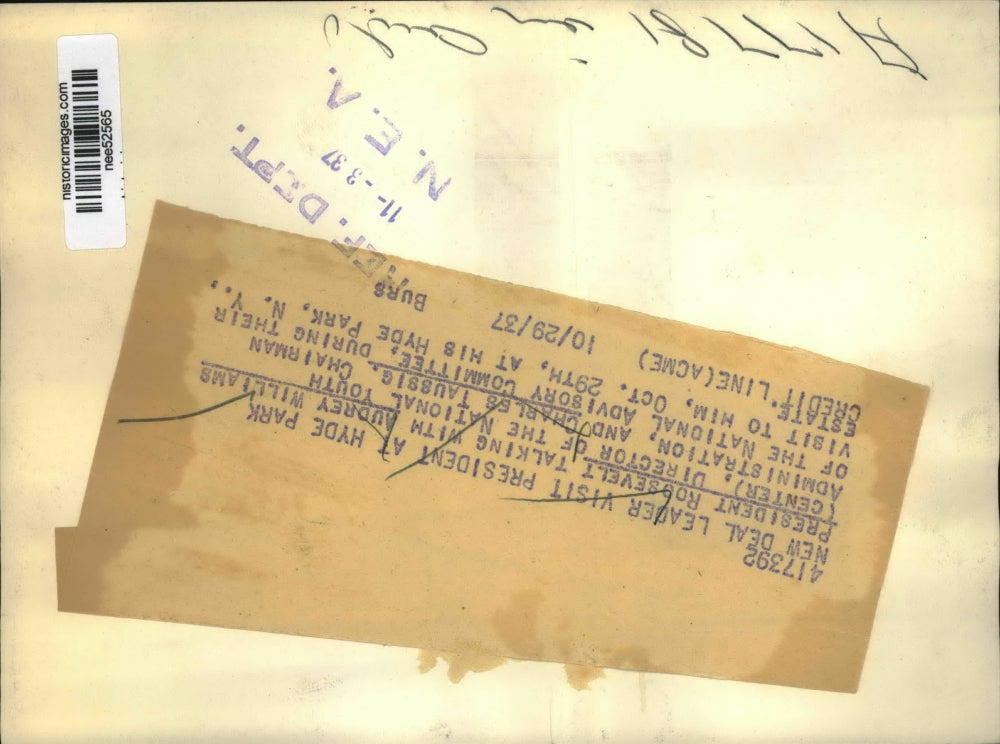 historicimages.com
nee52565
A 17781
N. E. A.
11-337
REF. DEPT.
417392
NEW DEAL LEADER VISIT PRESIDENT AT HYDE PARK
PRESIDENT ROOSEVELT TALKING WITH AUBREY WILLIAMS
(CENTER), DIRECTOR OF THE NATIONAL YOUTH
ADMINISTRATION, AND CHARLES TAUSSIG, CHAIRMAN
OF THE NATIONAL ADVISORY COMMITTEE, DURING THEIR
VISIT TO HIM, OCT. 29TH, AT HIS HYDE PARK, N. Y.,
ESTATE.
CREDIT LINE (ACME) 10/29/37 BURS